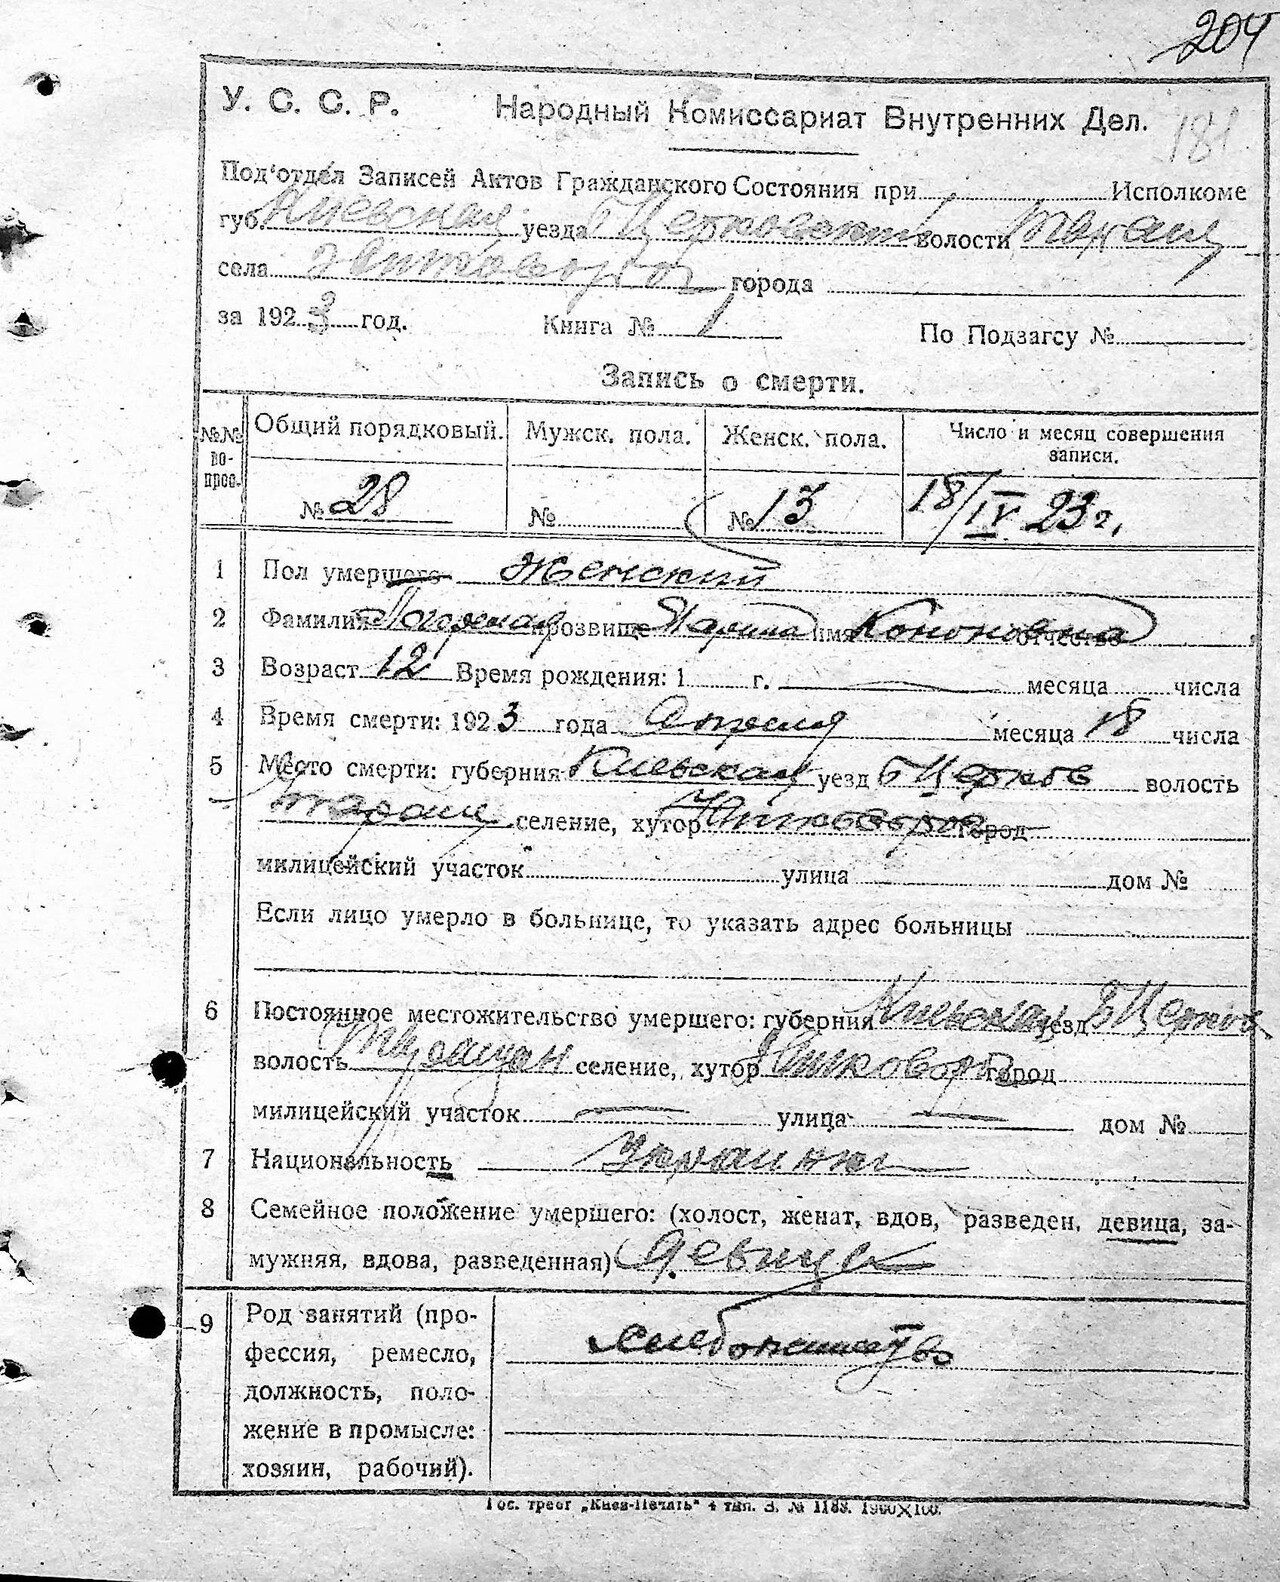 204
У. С. С. Р. Народный Комиссариат Внутренних Дел. 181
Под'отдел Записей Актов Гражданского Состояния при Исполкоме
губ. Киевская уезда БЦерковский волости
села города
за 1923 год. Книга № 1 По Подзагсу №
Запись о смерти.
№№ вопрос. Общий порядковый. Мужск. пола. Женск. пола. Число и месяц совершения записи.
№ 28 № № 13 18/IV 23 г.
1 Пол умершего Женский
2 Фамилия прозвище Марина имя Кононовна отчество
3 Возраст 12 Время рождения: 1 г. месяца числа
4 Время смерти: 1923 года Апреля месяца 18 числа
5 Место смерти: губерния Киевская уезд БЦерков волость
селение, хутор город
милицейский участок улица дом №
Если лицо умерло в больнице, то указать адрес больницы
6 Постоянное местожительство умершего: губерния Киевская уезд БЦерков
волость селение, хутор город
милицейский участок улица дом №
7 Национальность
8 Семейное положение умершего: (холост, женат, вдов, разведен, девица, за-
мужняя, вдова, разведенная) Девица
9 Род занятий (про-
фессия, ремесло, хлебопашество
должность, поло-
жение в промысле:
хозяин, рабочий).
Гос. трест „Киев-Печать" 4 тип. З. № 1183. 1900X100.